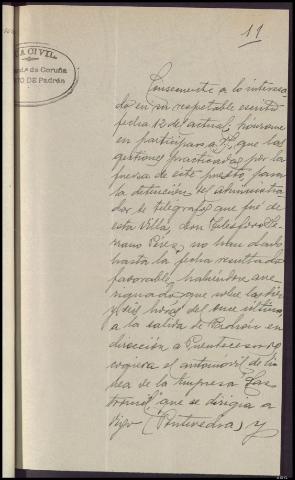 11
A CIVIL
And.ª de Coruña
TO DE Padrón
Consecuente a lo interesa
do en su respetable escrito
fecha 12 del actual, hónrome
en participar a V., que las
gestiones practicadas por la
fuerza de este puesto para
la detención del administra
dor de telégrafos que fué de
esta Villa, don Telesforo Se
rrano Pérez, no han dado
hasta la fecha resultado
favorable, habiéndose ave
riguado que sobre las diez
y seis horas del once último,
a la salida de Padrón en
dirección a Puentecesures
cogiera el automóvil de lí
nea de la Empresa "Cas
tromil" que se dirigía a
Vigo (Pontevedra) y